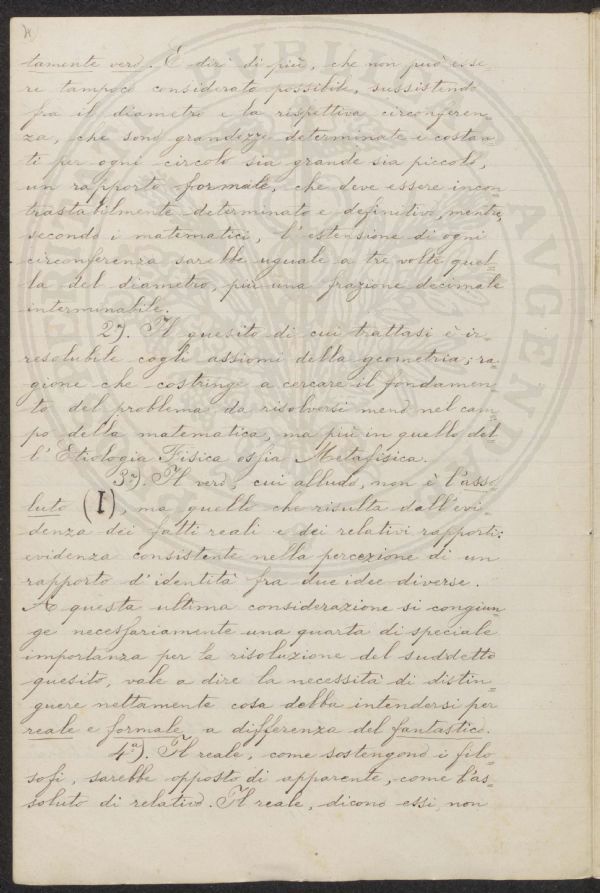 tamente vero. E dirò di più, che non può esse-
re tampoco considerato possibile, sussistendo
fra il diametro e la rispettiva circonferen-
za, che sono grandezze determinate e costan-
ti per ogni circolo sia grande sia piccolo,
un rapporto formale, che deve essere incon-
trastabilmente determinato e definitivo, mentre,
secondo i matematici, l'estensione di ogni
circonferenza sarebbe uguale a tre volte quel-
la del diametro, più una frazione decimale
interminabile.
2ª). Il quesito di cui trattasi è ir-
resolubile cogli assiomi della geometria; ra-
gione che costringe a cercare il fondamen-
to del problema da risolversi meno nel cam-
po della matematica, ma più in quello del-
l'Etiologia Fisica ossia Metafisica.
3ª). Il vero, cui alludo, non è l'asso-
luto (I), ma quello che risulta dall'evi-
denza dei fatti reali e dei relativi rapporti;
evidenza consistente nella percezione di un
rapporto d'identità fra due idee diverse.
A questa ultima considerazione si congiun-
ge necessariamente una quarta di speciale
importanza per la risoluzione del suddetto
quesito, vale a dire la necessità di distin-
guere nettamente cosa debba intendersi per
reale e formale a differenza del fantastico.
4ª). Il reale, come sostengono i filo-
sofi, sarebbe opposto di apparente, come l'as-
soluto di relativo. Il reale, dicono essi, non